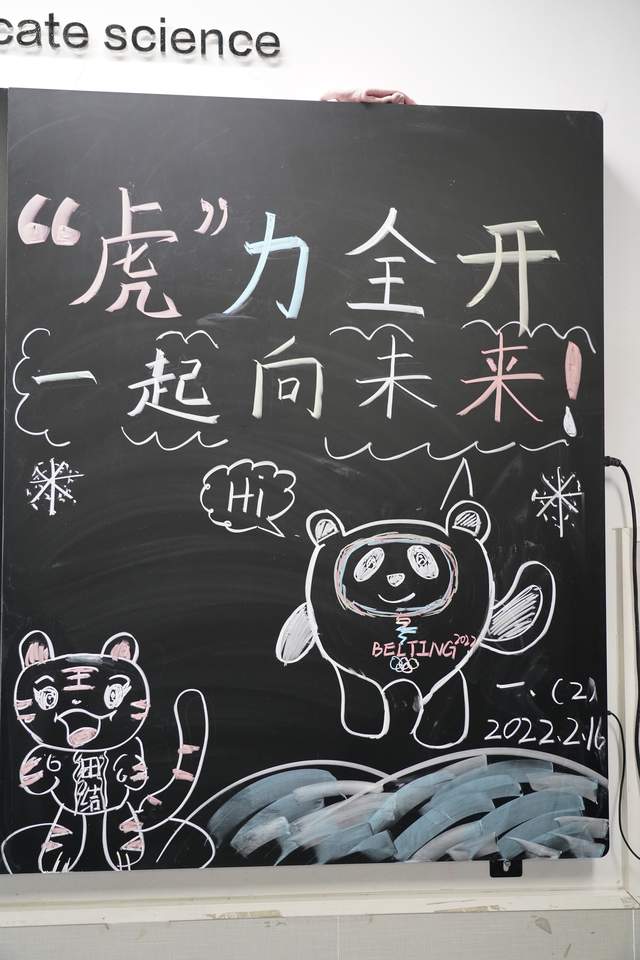 cate science
“虎”力全开
一起向未来！
Hi
王
BEIJING 2022
团结
一、（2）
2022.2.16